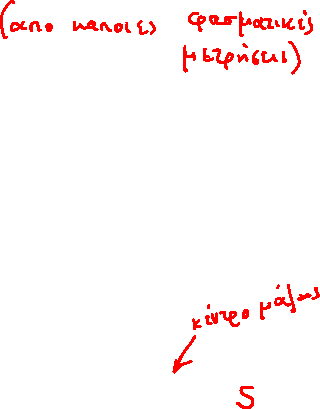 (απο καποιες φασματικές
μετρήσεις)
κέντρο μάζας
S